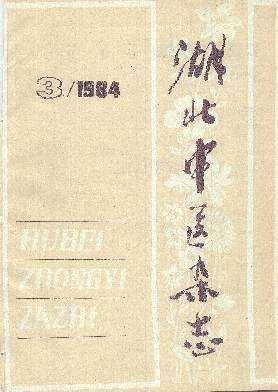 3/1984
湖北中医杂志
HUBEI
ZHONGYI
ZAZHI